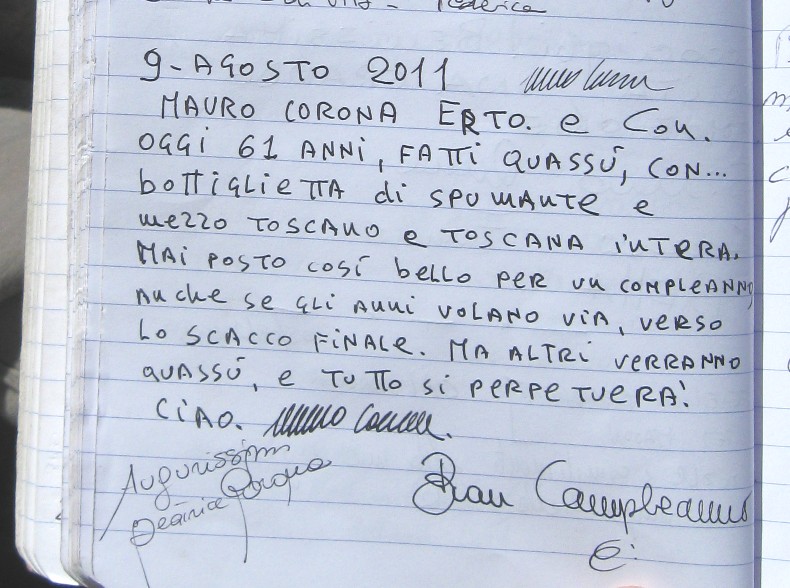 Federica
9-AGOSTO 2011
MAURO CORONA ERTO. e Con.
OGGi 61 ANNi, FATTi QUASSÚ, CON...
bOTTiGLiETTA di SPUMANTE e
MEZZO TOSCANO e TOSCANA iNTERA.
MAi POSTO COSÍ bELLO PER UN COMPLEANNO,
ANCHE SE GLi ANNi VOLANO ViA, VERSO
LO SCACCO FiNALE. MA ALTRi VERRANNO
QUASSÚ, e TUTTO Si PERPETUERA!
CiAO. Mauro Corona.
Augurissimi
Buon Compleanno